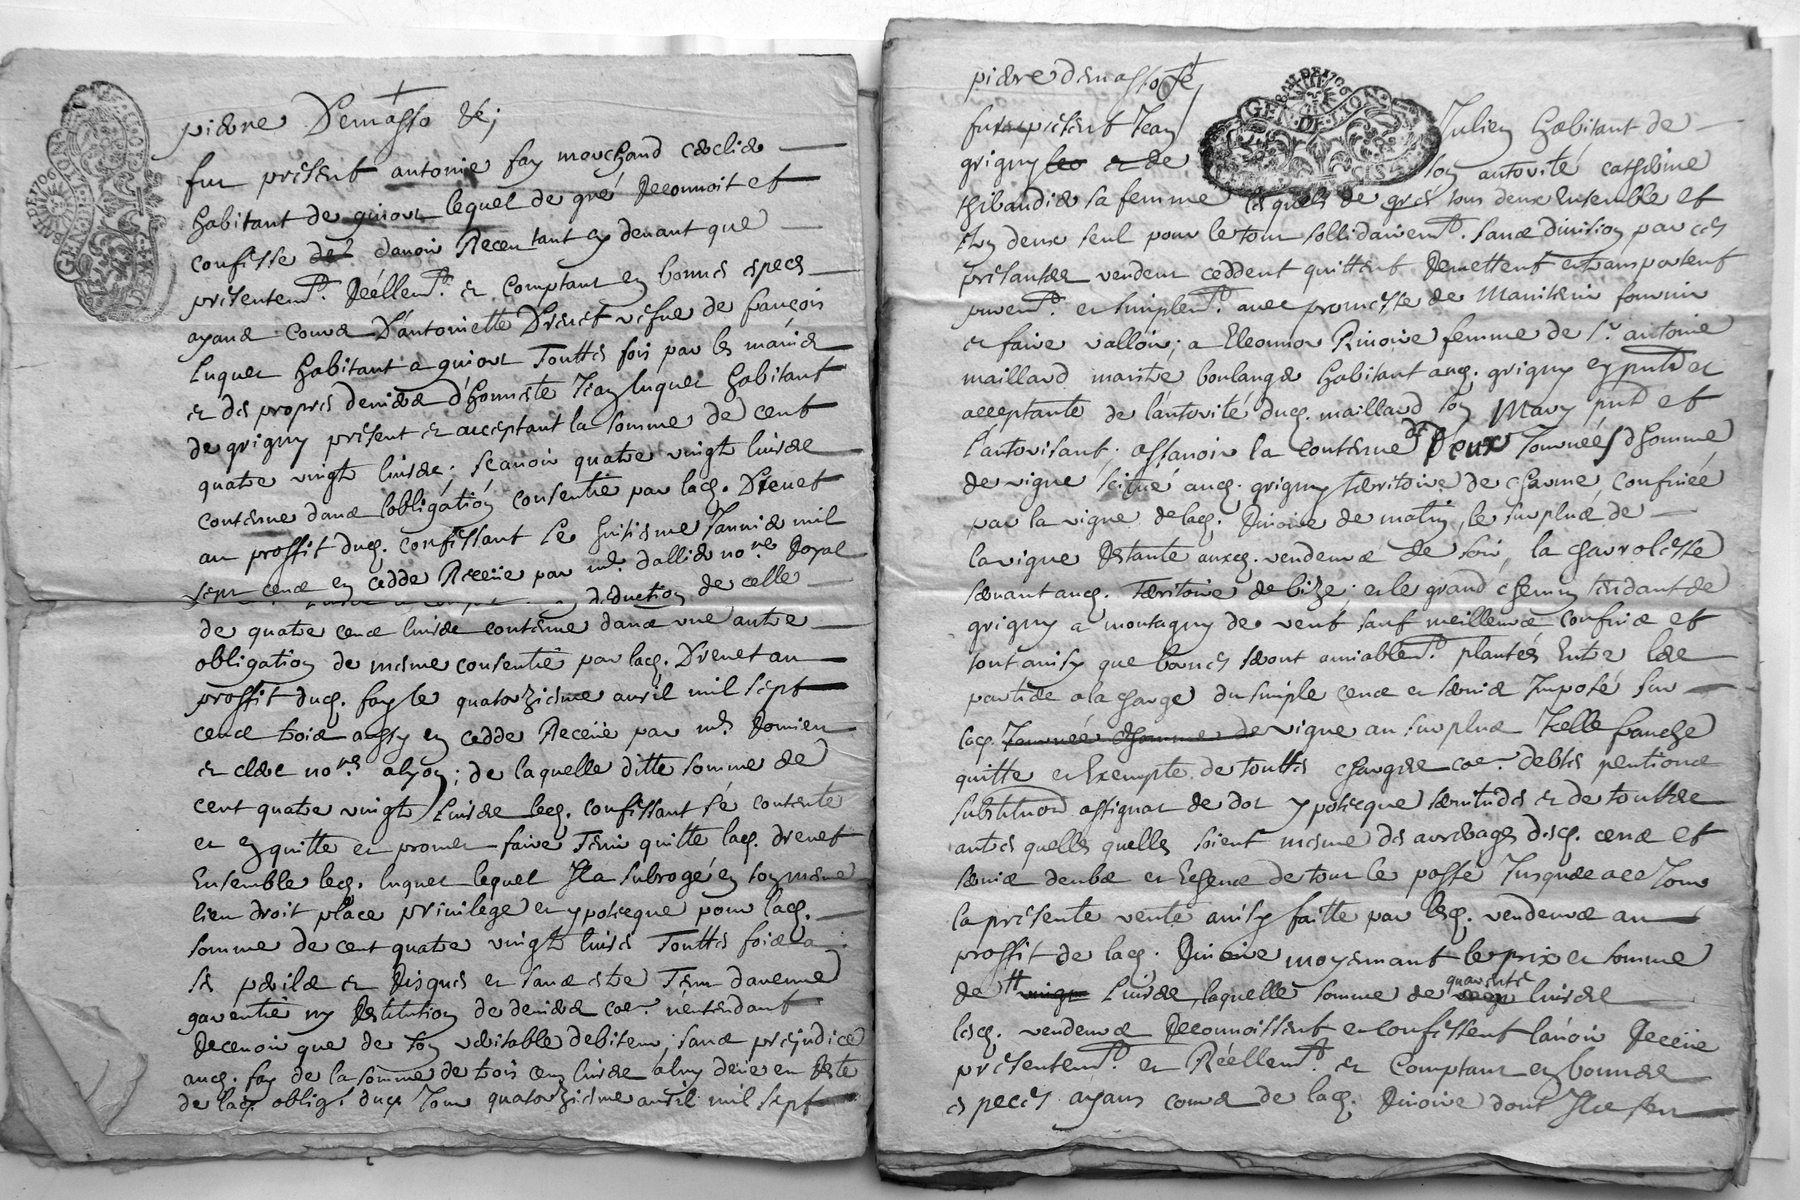 pierre Demasso &c;
fut présent antoine fay marchand cerclier
habitant de givort lequel de gré Reconnoit et
confesse davoir Receu tant cy devant que
présentemt. Réellemt. et comptant en bonnes especes
ayant cours D'antoinette Drenet vefue de françois
luquet habitant a givort Touttes fois par les mains
et des propres deniers d'honneste Jean luquet habitant
de grigny présent et acceptant la somme de cent
quatre vingt livres; scavoir quatre vingt livres
contenue dans l'obligation consentie par lad. Drenet
au proffit dud. confessant le huitieme Janvier mil
sept cens et cedde Receüe par me. dallier nore. Royal
deduction de celle
de quatre cens livres contenue dans une autre
obligation de mesme consentie par lad. Drenet au
proffit dud. fay le quatorzieme avril mil sept
cens trois aussy et cedde Receüe par me. Romieu
et clerc nores. alyon; de laquelle ditte somme de
cent quatre vingt Livres led. confessant se contente
et en quitte et promet faire Tenir quitte lad. drenet
Ensemble led. luquet lequel Il a subrogé en son mesme
lieu droit place privilege et ypoteque pour lad.
somme de cent quatre vingt livres Touttes fois a
ses perils et Risques et sans estre Tenu daucune
garentie ny Restitution de deniers car n'entendant
Recevoir que de son veritable debiteur; sans préjudice
aud. fay de la somme de trois cens livres aluy deüe en Reste
de lad. oblig. dud. Jour quatorzieme avril mil sept
pierre demasso &c
furent présent Jean Julien habitant de
grigny et de son autorité catherine
thibaudier sa femme lesquels de grés tous deux Ensemble et
l'un deux seul pour le tout sollidairemt. sans division par ces
présantes vendent ceddent quittent Remettent et transportent
puremt. et simplemt. avec promesse de Maintenir fournir
et faire valloir; a Eleonnor Rivoire femme de Sr. antoine
maillard maitre boulanger habitant aud. grigny cy pnte et
acceptante de lautorité dud. maillard son Mary pnt et
l'autorisant. assavoir la contenue de Deux Journées dhomme
de vigne scitué aud. grigny territoire de charme, confinée
par la vigne de lad. Rivoire de matin, le surplus de
la vigne Restante auxd. vendeurs de soir, la charolesse
servant aud. territoire de bize; et le grand chemin tendant de
grigny a montagny de vent sauf meilleurs confins et
tout ainsy que bornes seront amiablemt. plantés Entre les
parties a la charge du simple cens et servis Imposé sur
lad. Journée dhomme de vigne au surplus Icelle franche
quitte et Exempte de touttes charges car. debtes pentions
substitution assignat de dot ypoteque servitudes et de touttes
autres quelles quelles soient mesme des arrerages desd. cens et
servis deubs et Echeus de tout le passé Jusques a ce Jour
la présente vente ainsy faitte par lesd. vendeurs au
proffit de lad. Rivoire moyennant le prix et somme
de Livres laquelle somme de quarente livres
lesd. vendeurs Reconnoissent et confessent lavoir Receüe
présentemt. et Réellemt. et comptant en bonnes
especes ayans cours de lad. Rivoire dont Ils se sen
GEN. DE LYON